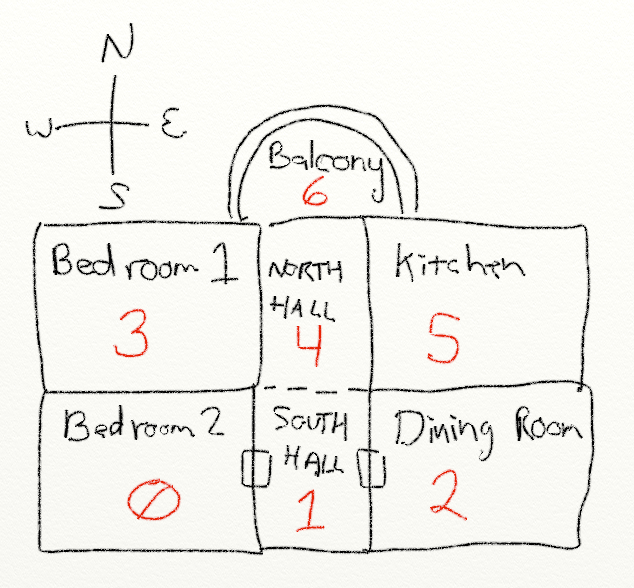 N
W E
S
Balcony
6
Bedroom 1
3
NORTH
HALL
4
Kitchen
5
Bedroom 2
0
SOUTH
HALL
1
Dining Room
2